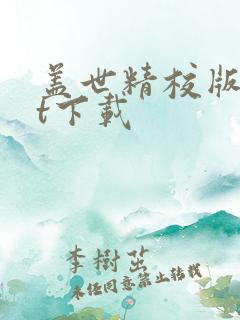 盖世精校版
t下载
李樹茁
未经同意禁止转载